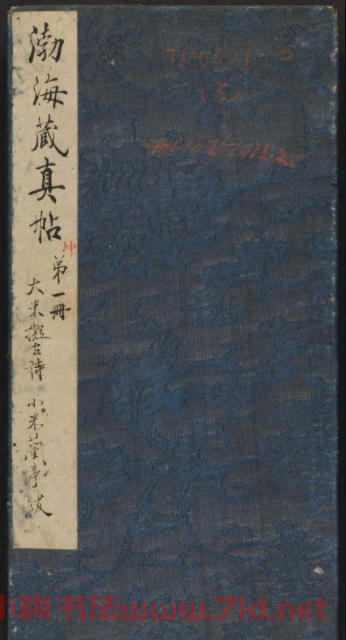 渤海藏真帖
第一冊
大米擬古詩 小米蘭亭跋
小楷书法www.7ld.net